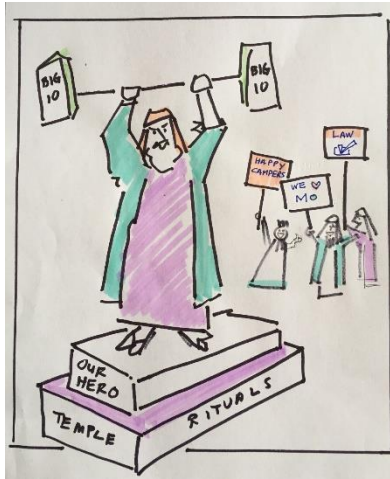 BIG
10
BIG
10
LAW
HAPPY
CAMPERS
WE ♥
MO
OUR
HERO
TEMPLE RITUALS